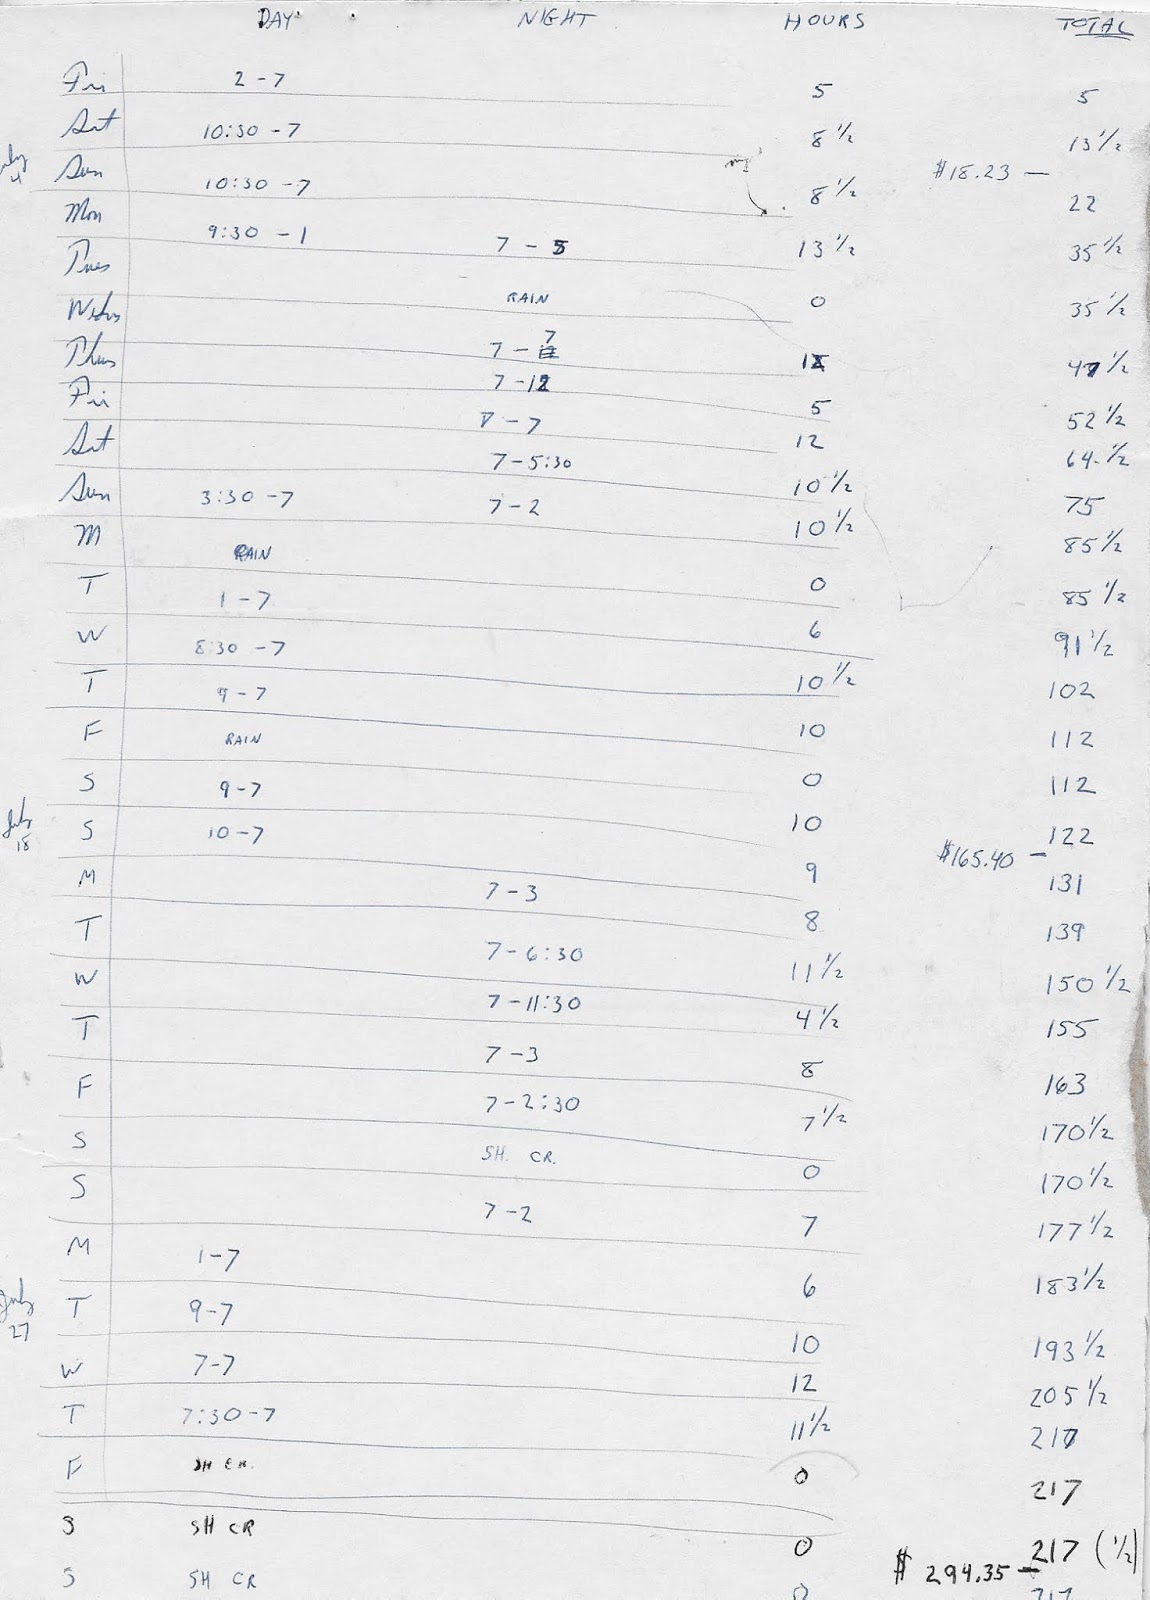 DAY NIGHT HOURS TOTAL
Fri 2 - 7 5 5
Sat 10:30 - 7 8 1/2 13 1/2
July 4 Sun 10:30 - 7 8 1/2 $18.23 — 22
Mon 9:30 - 1 7 - 5 13 1/2 35 1/2
Tues RAIN 0 35 1/2
Weds 7 - 7 12 47 1/2
Thurs 7 - 12 5 52 1/2
Fri 7 - 7 12 64 1/2
Sat 7 - 5:30 10 1/2 75
Sun 3:30 - 7 7 - 2 10 1/2 85 1/2
M RAIN 0 85 1/2
T 1 - 7 6 91 1/2
W 8:30 - 7 10 1/2 102
T 9 - 7 10 112
F RAIN 0 112
S 9 - 7 10 122
July 18 S 10 - 7 9 $165.40 — 131
M 7 - 3 8 139
T 7 - 6:30 11 1/2 150 1/2
W 7 - 11:30 4 1/2 155
T 7 - 3 8 163
F 7 - 2:30 7 1/2 170 1/2
S SH. CR. 0 170 1/2
S 7 - 2 7 177 1/2
M 1 - 7 6 183 1/2
July 27 T 9 - 7 10 193 1/2
W 7 - 7 12 205 1/2
T 7:30 - 7 11 1/2 217
F SH CR. 0 217
S SH CR 0 217 (1/2)
S SH CR 0 $294.35 — 217